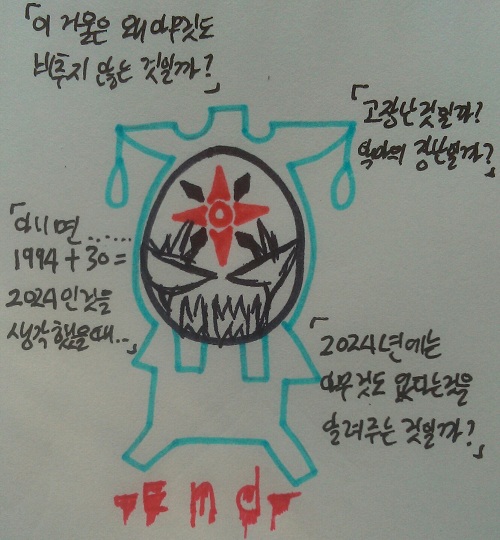 「이 거울은 왜 아무것도
비추지 않는 것일까?」
「고장난것일까?
악마의 장난일까?」
「아니면......
1994+30=
2024인것을
생각했을때..」
「2024년에는
아무것도 없다는것을
알려주는 것일까?」
Emd